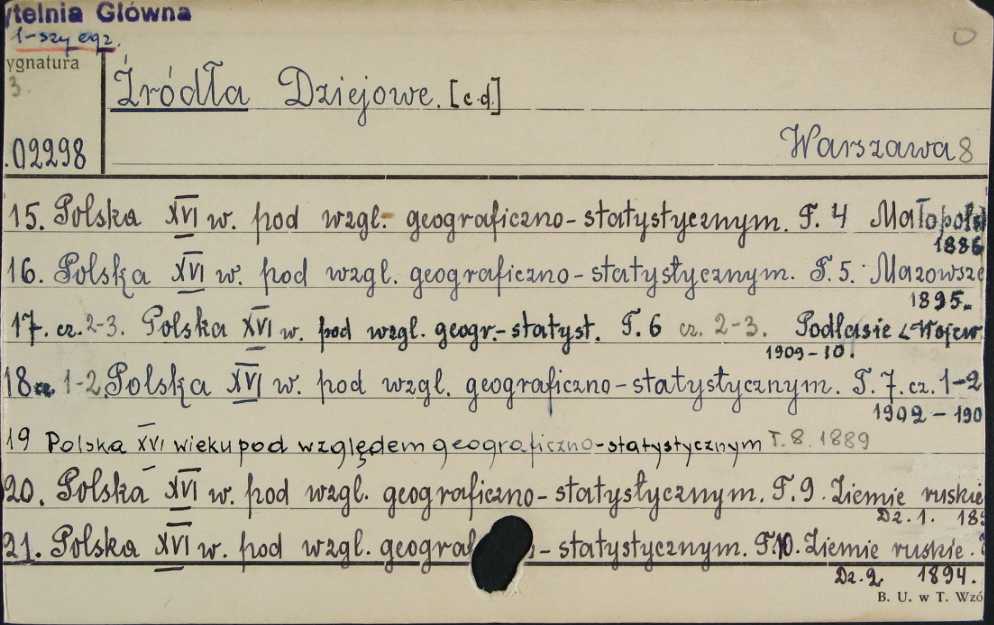 ytelnia Główna
1-szy egz.
ygnatura
3.
.02298
Źródła Dziejowe. [c.d.]
Warszawa 8
15. Polska XVI w. pod wzgl. geograficzno-statystycznym. T. 4 Małopols
1886
16. Polska XVI w. pod wzgl. geograficzno-statystycznym. T. 5. Mazowsze
1895.
17. cz. 2-3. Polska XVI w. pod wzgl. geogr.-statyst. T. 6 cz. 2-3. Podlasie Wojew
1909-10.
18 cz. 1-2. Polska XVI w. pod wzgl. geograficzno-statystycznym. T. 7. cz. 1-2
1902 - 190
19 Polska XVI wieku pod względem geograficzno-statystycznym T. 8. 1889
20. Polska XVI w. pod wzgl. geograficzno-statystycznym. T. 9. Ziemie ruskie
Dz. 1. 18
21. Polska XVI w. pod wzgl. geograf o-statystycznym. T. 10. Ziemie ruskie.
Dz. 2 1894.
B. U. w T. Wzó